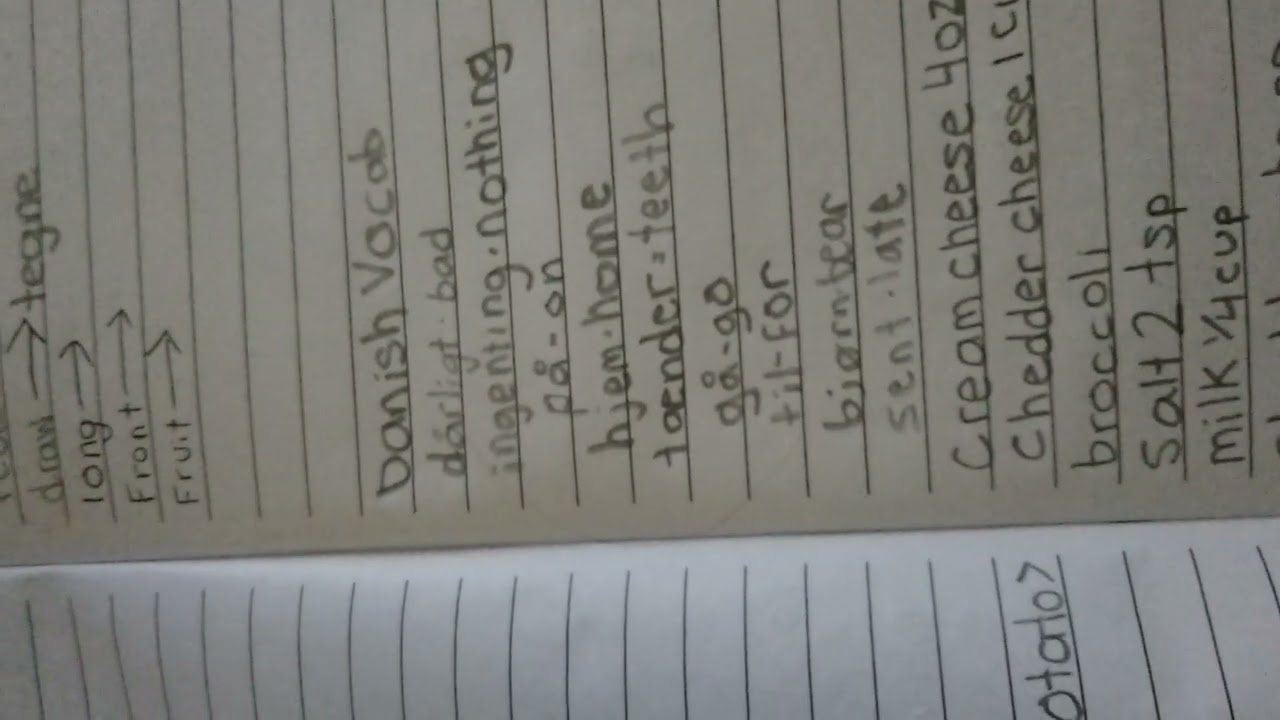 draw → tegne
long →
Front →
Fruit →
Danish Vocab
dårligt - bad
ingenting - nothing
på - on
hjem - home
taender = teeth
gå - go
til - for
bjørn - bear
sent - late
Cream cheese 4oz
Chedder cheese 1
broccoli
Salt 2 tsp
milk 1/4 cup